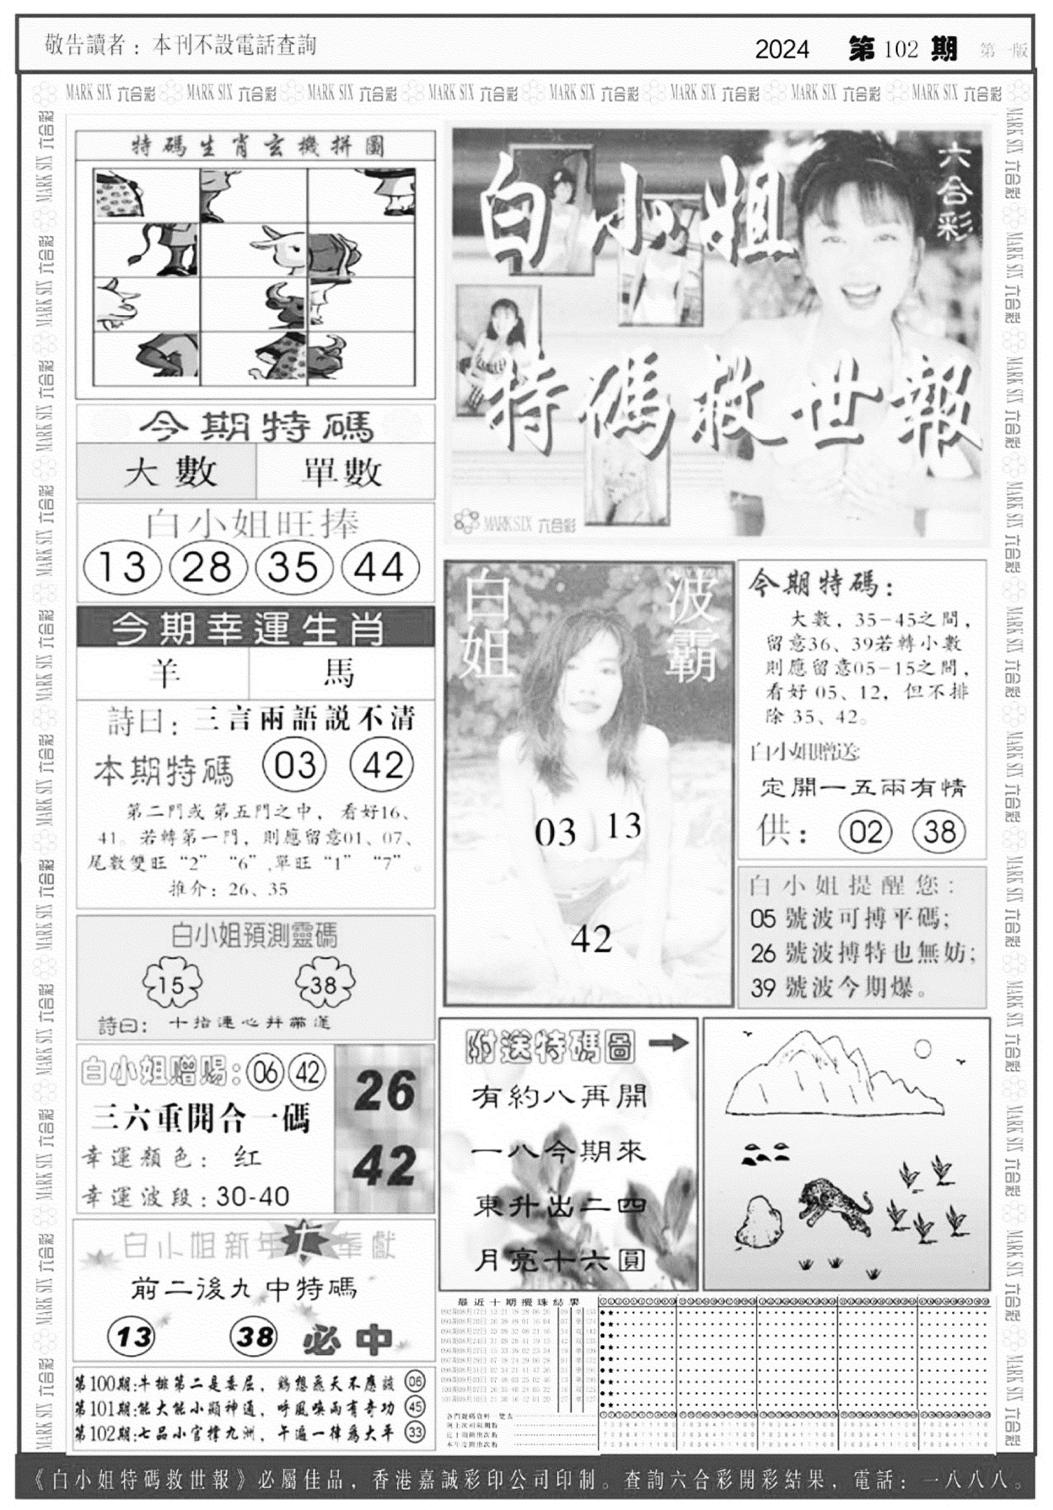 敬告讀者：本刊不設電話查詢
2024 第 102 期 第一版
MARK SIX 六合彩 MARK SIX 六合彩 MARK SIX 六合彩 MARK SIX 六合彩 MARK SIX 六合彩 MARK SIX 六合彩 MARK SIX 六合彩 MARK SIX 六合彩
特碼生肖玄機拼圖
今期特碼
大數 單數
白小姐旺捧
13 28 35 44
今期幸運生肖
羊 馬
詩曰：三言兩語説不清
本期特碼 03 42
第二門或第五門之中，看好16、
41。若轉第一門，則應留意01、07、
尾數雙旺“2” “6”,單旺“1” “7”。
推介：26、35
白小姐預測靈碼
15 38
詩曰：十指連心并蒂蓮
白小姐赠赐：06 42
三六重開合一碼
幸運顏色：红
幸運波段：30-40
26
42
白小姐新年 奉獻
前二後九中特碼
13 38 必中
第100期:牛排第二是委屈，鷄想飛天不應該 06
第101期:能大能小顯神通，呼風喚雨有奇功 45
第102期:七品小官擇九洲，午過一律爲大平 33
六合彩
白小姐
特碼救世報
MARK SIX 六合彩
白姐
波霸
03 13
42
今期特碼：
大數，35-45之間，
留意36、39若轉小數
則應留意05-15之間，
看好 05、12，但不排
除 35、42。
白小姐贈送:
定開一五兩有情
供：02 38
白小姐提醒您：
05 號波可搏平碼；
26 號波搏特也無妨；
39 號波今期爆。
附送特碼圖
有約八再開
一八今期來
東升出二四
月亮十六圓
最近十期攪珠結果
《白小姐特碼救世報》必屬佳品，香港嘉誠彩印公司印制。查詢六合彩開彩結果，電話：一八八八。